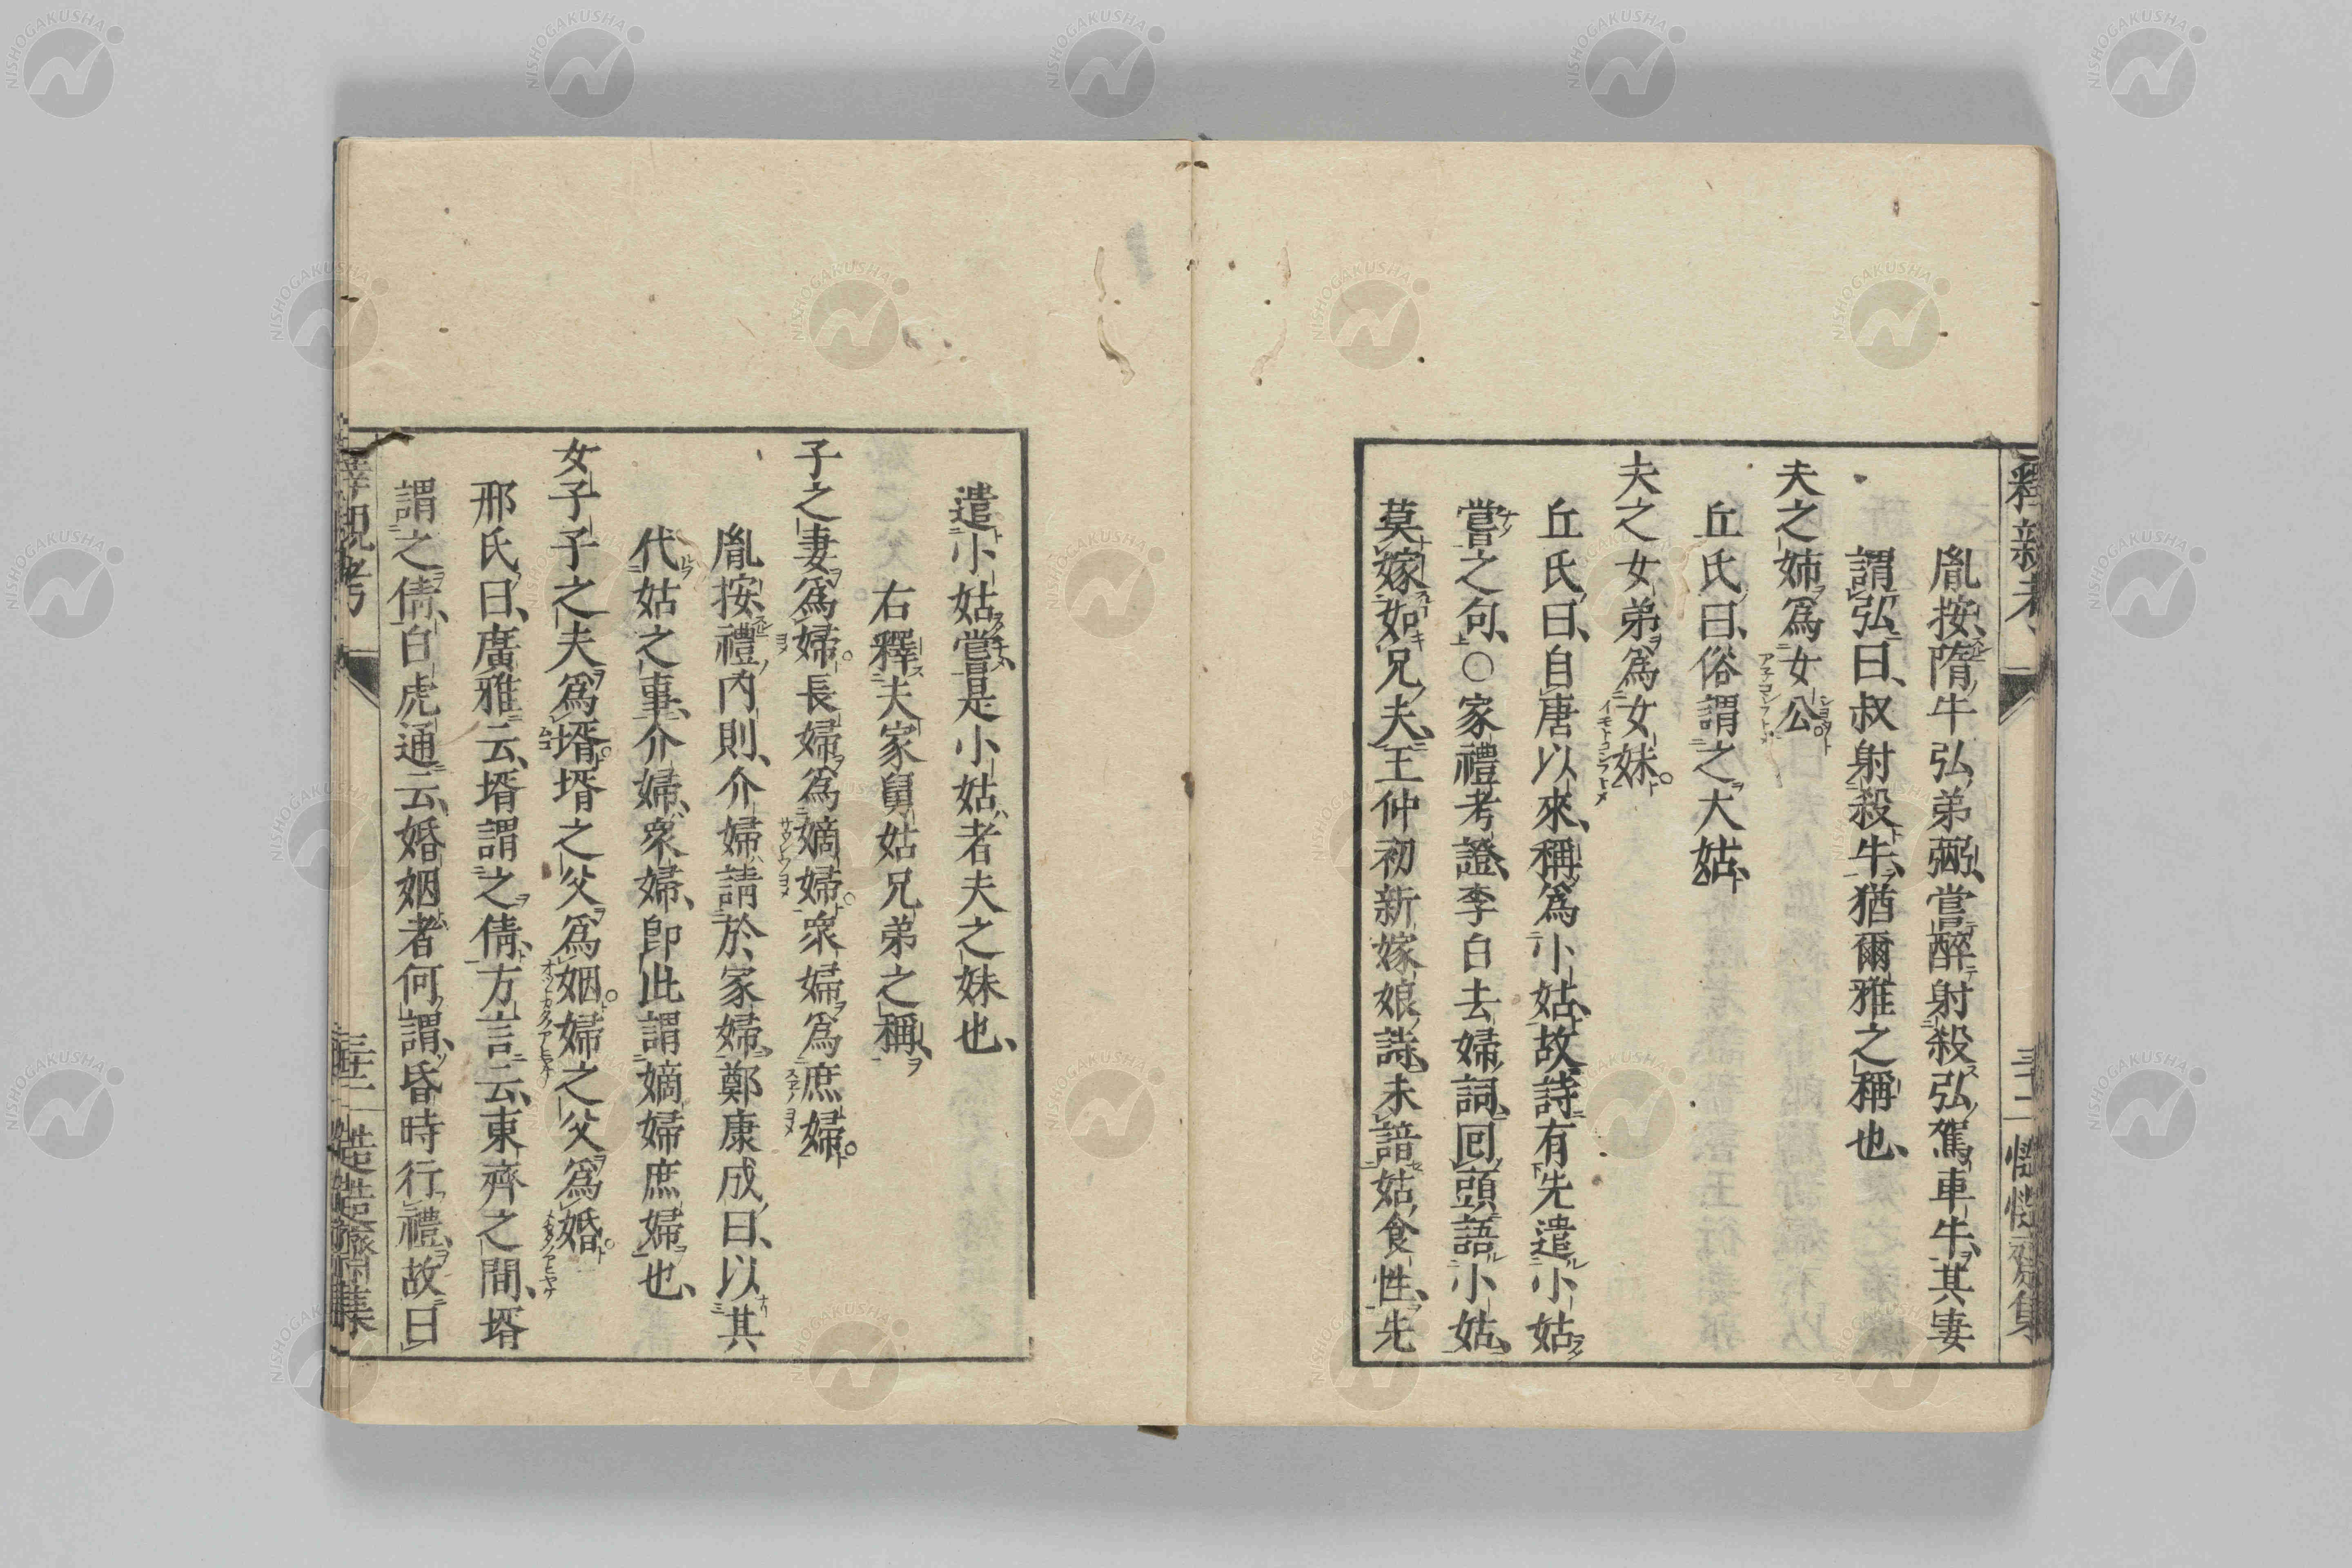 胤按、隋牛弘弟弼、嘗醉射殺弘駕車牛、其妻
謂弘曰、叔射殺牛、猶爾雅之稱也、
夫之姉爲女公
丘氏曰、俗謂之大姑、
夫之女弟爲女妹。
丘氏曰、自唐以來、稱爲小姑、故詩有先遣小姑
嘗之句、○家禮考證、李白去婦詞、回頭語小姑、
莫嫁如兄夫、王仲初新嫁娘詩、未諳姑食性、先
遣小姑嘗、是小姑者夫之妹也、
右釋夫家舅姑兄弟之稱、
子之妻爲婦。長婦爲嫡婦。衆婦爲庶婦。
胤按、禮内則、介婦請於家婦、鄭康成曰、以其
代姑之事、介婦、衆婦、卽此謂嫡婦庶婦也、
女子子之夫爲壻。壻之父爲姻。婦之父爲婚。
邢氏曰、廣雅云、壻謂之倩、方言云、東齊之間、壻
謂之倩、白虎通云、婚姻者何謂、昏時行禮、故曰
釋親考